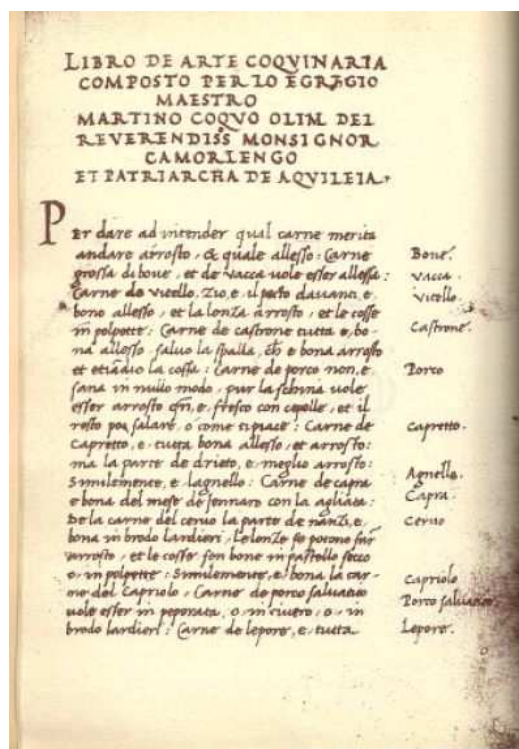 LIBRO DE ARTE COQVINARIA
COMPOSTO PER LO EGREGIO
MAESTRO
MARTINO COQVO OLIM DEL
REVERENDISS MONSIGNOR
CAMORLENGO
ET PATRIARCHA DE AQVILEIA.
Per dare ad intender qual carne merita
andare arrosto, & quale allesso: Carne
grossa di boue, et de vacca uole esser allessa:
Carne de vitello. Zio, e, il pecto dauanti, e,
bono allesso, et la lonza arrosto, et le cosse
in polpette: Carne de castrone tutta e, bo-
na allesso saluo la spalla, ch e bona arrosto
et etiādio la cossa: Carne de porco non, e,
sana in nullo modo, pur la schina uole
esser arrosto qn, e, fresco con cepolle, et il
resto poi salare, o come ti piace: Carne de
Capretto, e, tutta bona allesso, et arrosto:
ma la parte de drieto, e, meglio arrosto:
Similemente, e lagnello: Carne de capra
e bona del mese de Jennaro con la agliata:
De la carne del ceruo la parte de nanzi, e,
bona in brodo lardieri, le lonze se potono
arrosto, et le cosse son bone in pastello secco
o, in polpette: Similemente, e, bona la car-
ne del Capriolo, Carne de porco saluatico
uole esser in peporata, o, in ciuero, o, in
brodo lardieri: Carne de lepore, e, tutta
Boue.
vacca.
vitello.
Castrone.
Porco
Capretto.
Agnello.
Capra.
Ceruo
Capriolo
Porco saluatico.
Lepore.